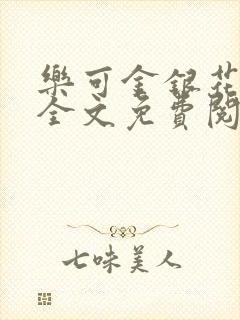 樂可金銀花
全文免費閱
七味美人